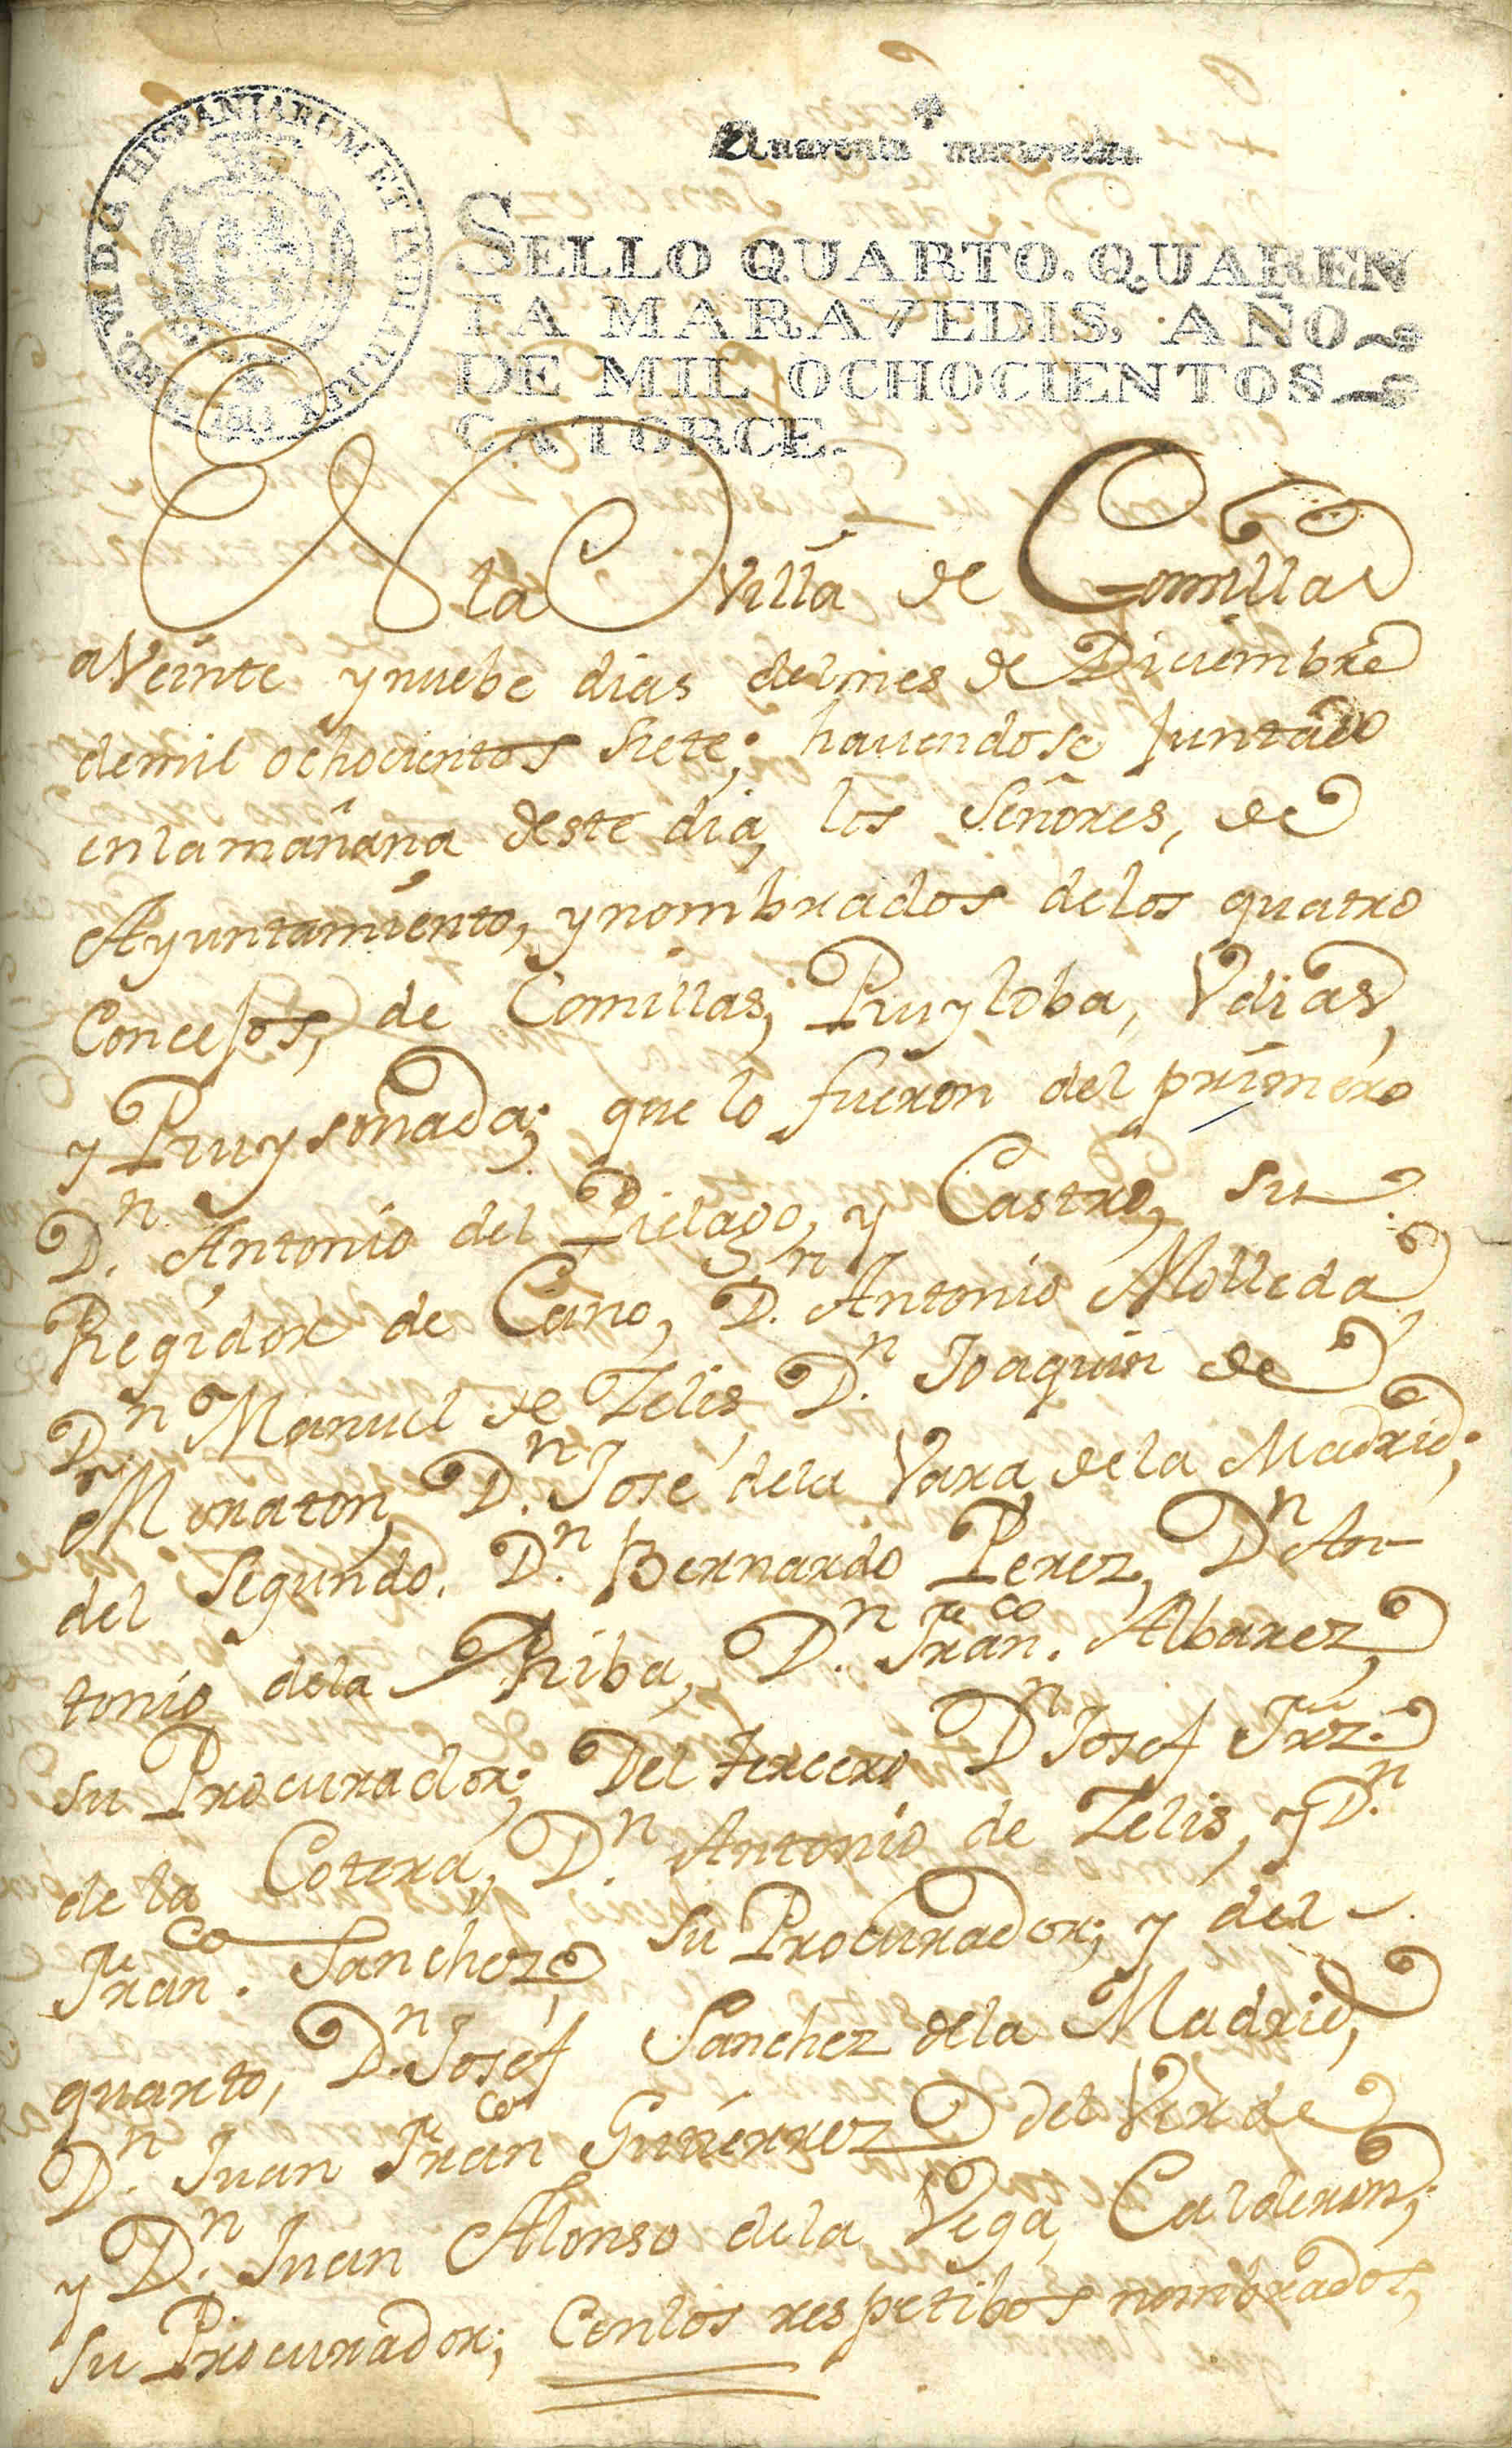 FERD. VII. D. G. HISPANIARUM ET INDIARUM REX
1814
Quarenta maravedis
SELLO QUARTO. QUAREN
TA MARAVEDIS, AÑO
DE MIL OCHOCIENTOS
CATORCE.
EN la Villa de Comillas
a Veinte y nuebe dias del mes de Diciembre
de mil ochocientos Siete; haviendose Juntado
en la mañana deste dia, los Señores, de
Ayuntamiento, y nombrados de los quatro
Concejos, de Comillas, Ruyloba, Vdias,
y Ruysenada; que lo fueron del primero
D.n Antonio del Pielago, y Castro, su
Regidor de Cano, D.n Antonio Molleda,
D.n Manuel de Zelis, D.n Joaquin de
Moraton, D.n José de la Vara de la Madrid;
del Segundo. D.n Bernardo Perez, D.n An
tonio de la Riba, D.n Fran.co Albarez,
su Procurador; Del tercero D.n Josef Frz.
de la Cotera, D.n Antonio de Zelis, y D.n
Fran.co Sanchez, su Procurador; y del
quarto, D.n Josef Sanchez de la Madrid,
D.n Juan Fran.co Gutierrez del Verde
y D.n Juan Alonso de la Vega, Calderon,
su Procurador; Con los respetibos nombrados,